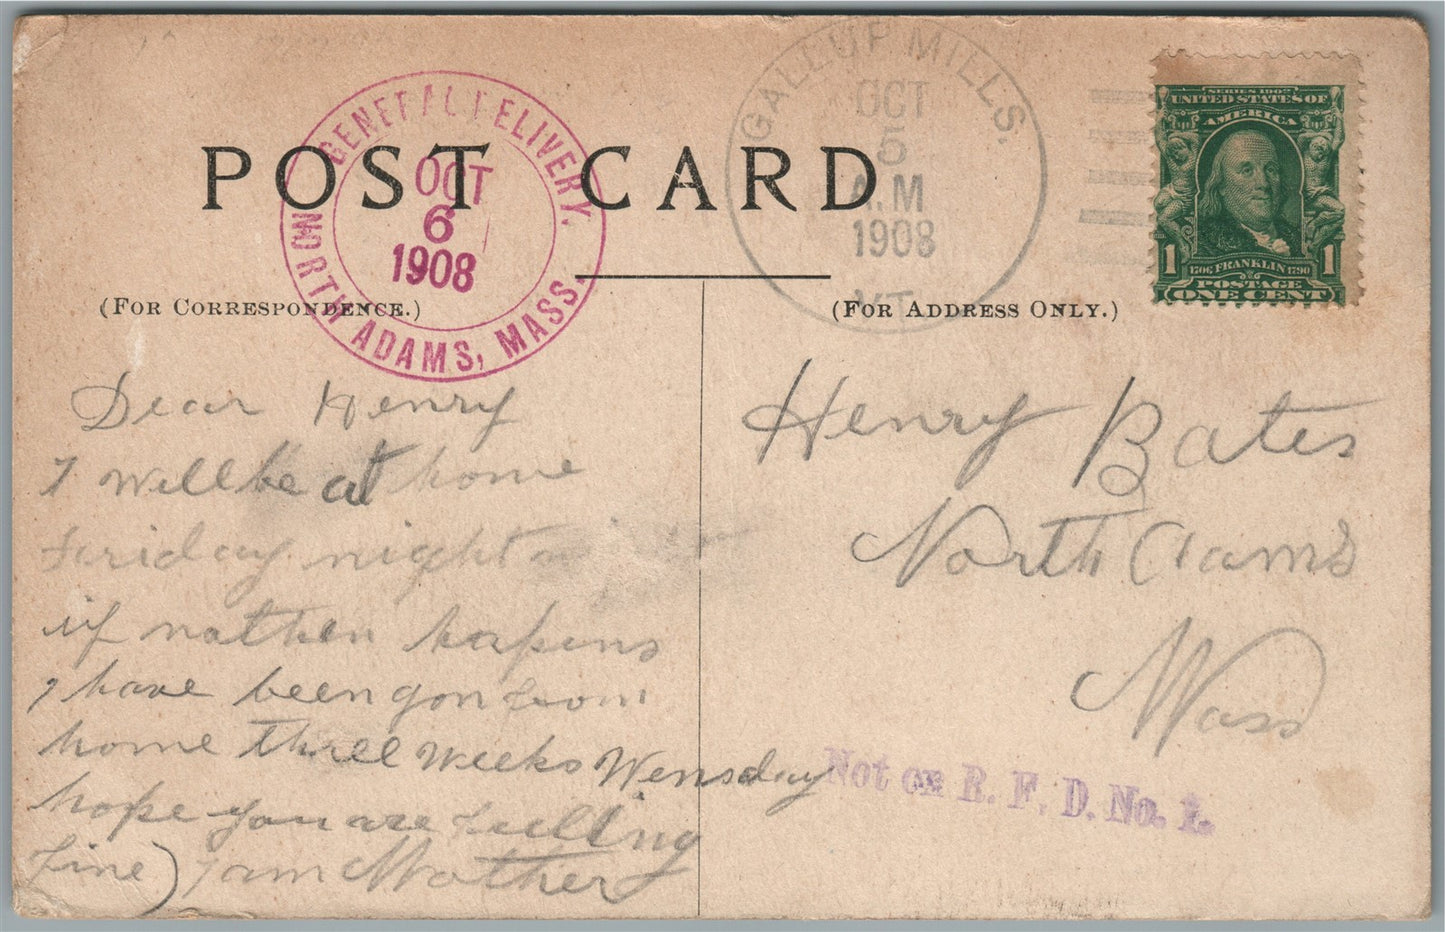 POST CARD
GENERAL DELIVERY.
NORTH ADAMS, MASS.
OCT
6
1908
GALLUP MILLS.
OCT
5
A.M
1908
VT.
SERIES 1902
UNITED STATES OF
AMERICA
1 1706 FRANKLIN 1790 1
POSTAGE
ONE CENT
(FOR CORRESPONDENCE.)
(FOR ADDRESS ONLY.)
Dear Henry
I will be at home
Friday night
if nothen hapens
I have been gon from
home three weeks Wensday
hope you are feelling
fine) I am Mother
Henry Bates
North Adams
Mass
Not on R. F. D. No. 1.